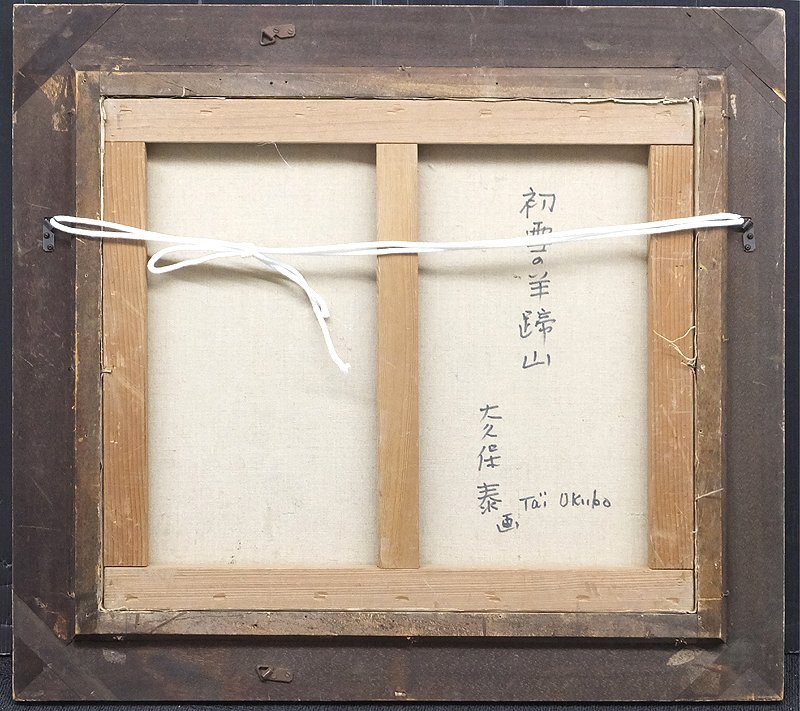 初雪の羊蹄山
大久保泰画
Taï Okubo